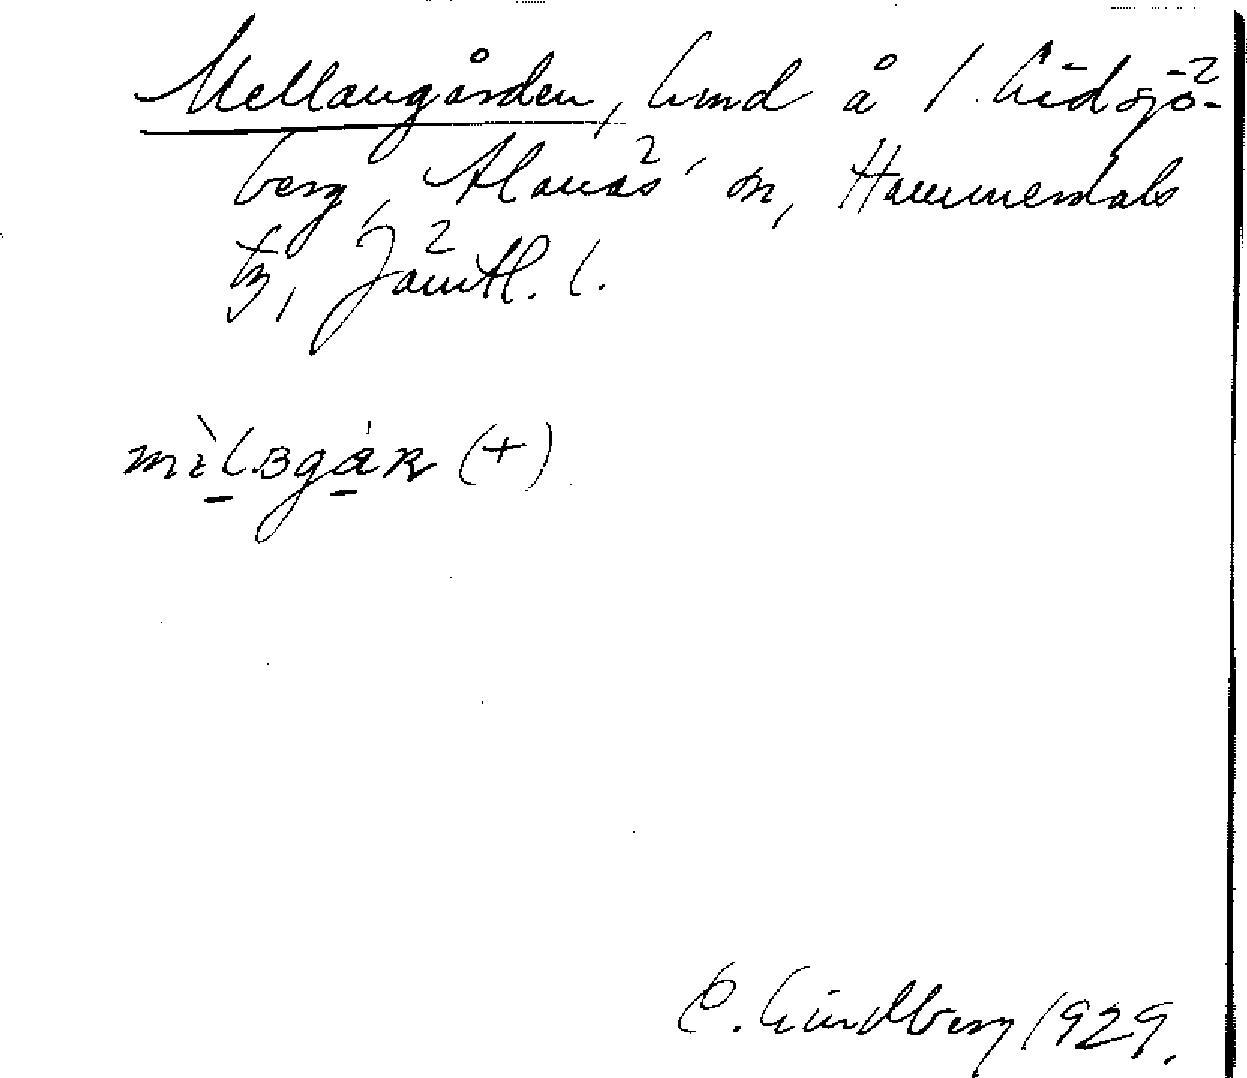 Mellangården, hmd å 1 Lidsjö-
berg, Alanäs sn, Hammerdals
tg, Jämtl. l.
(+)
Lindberg 1929.